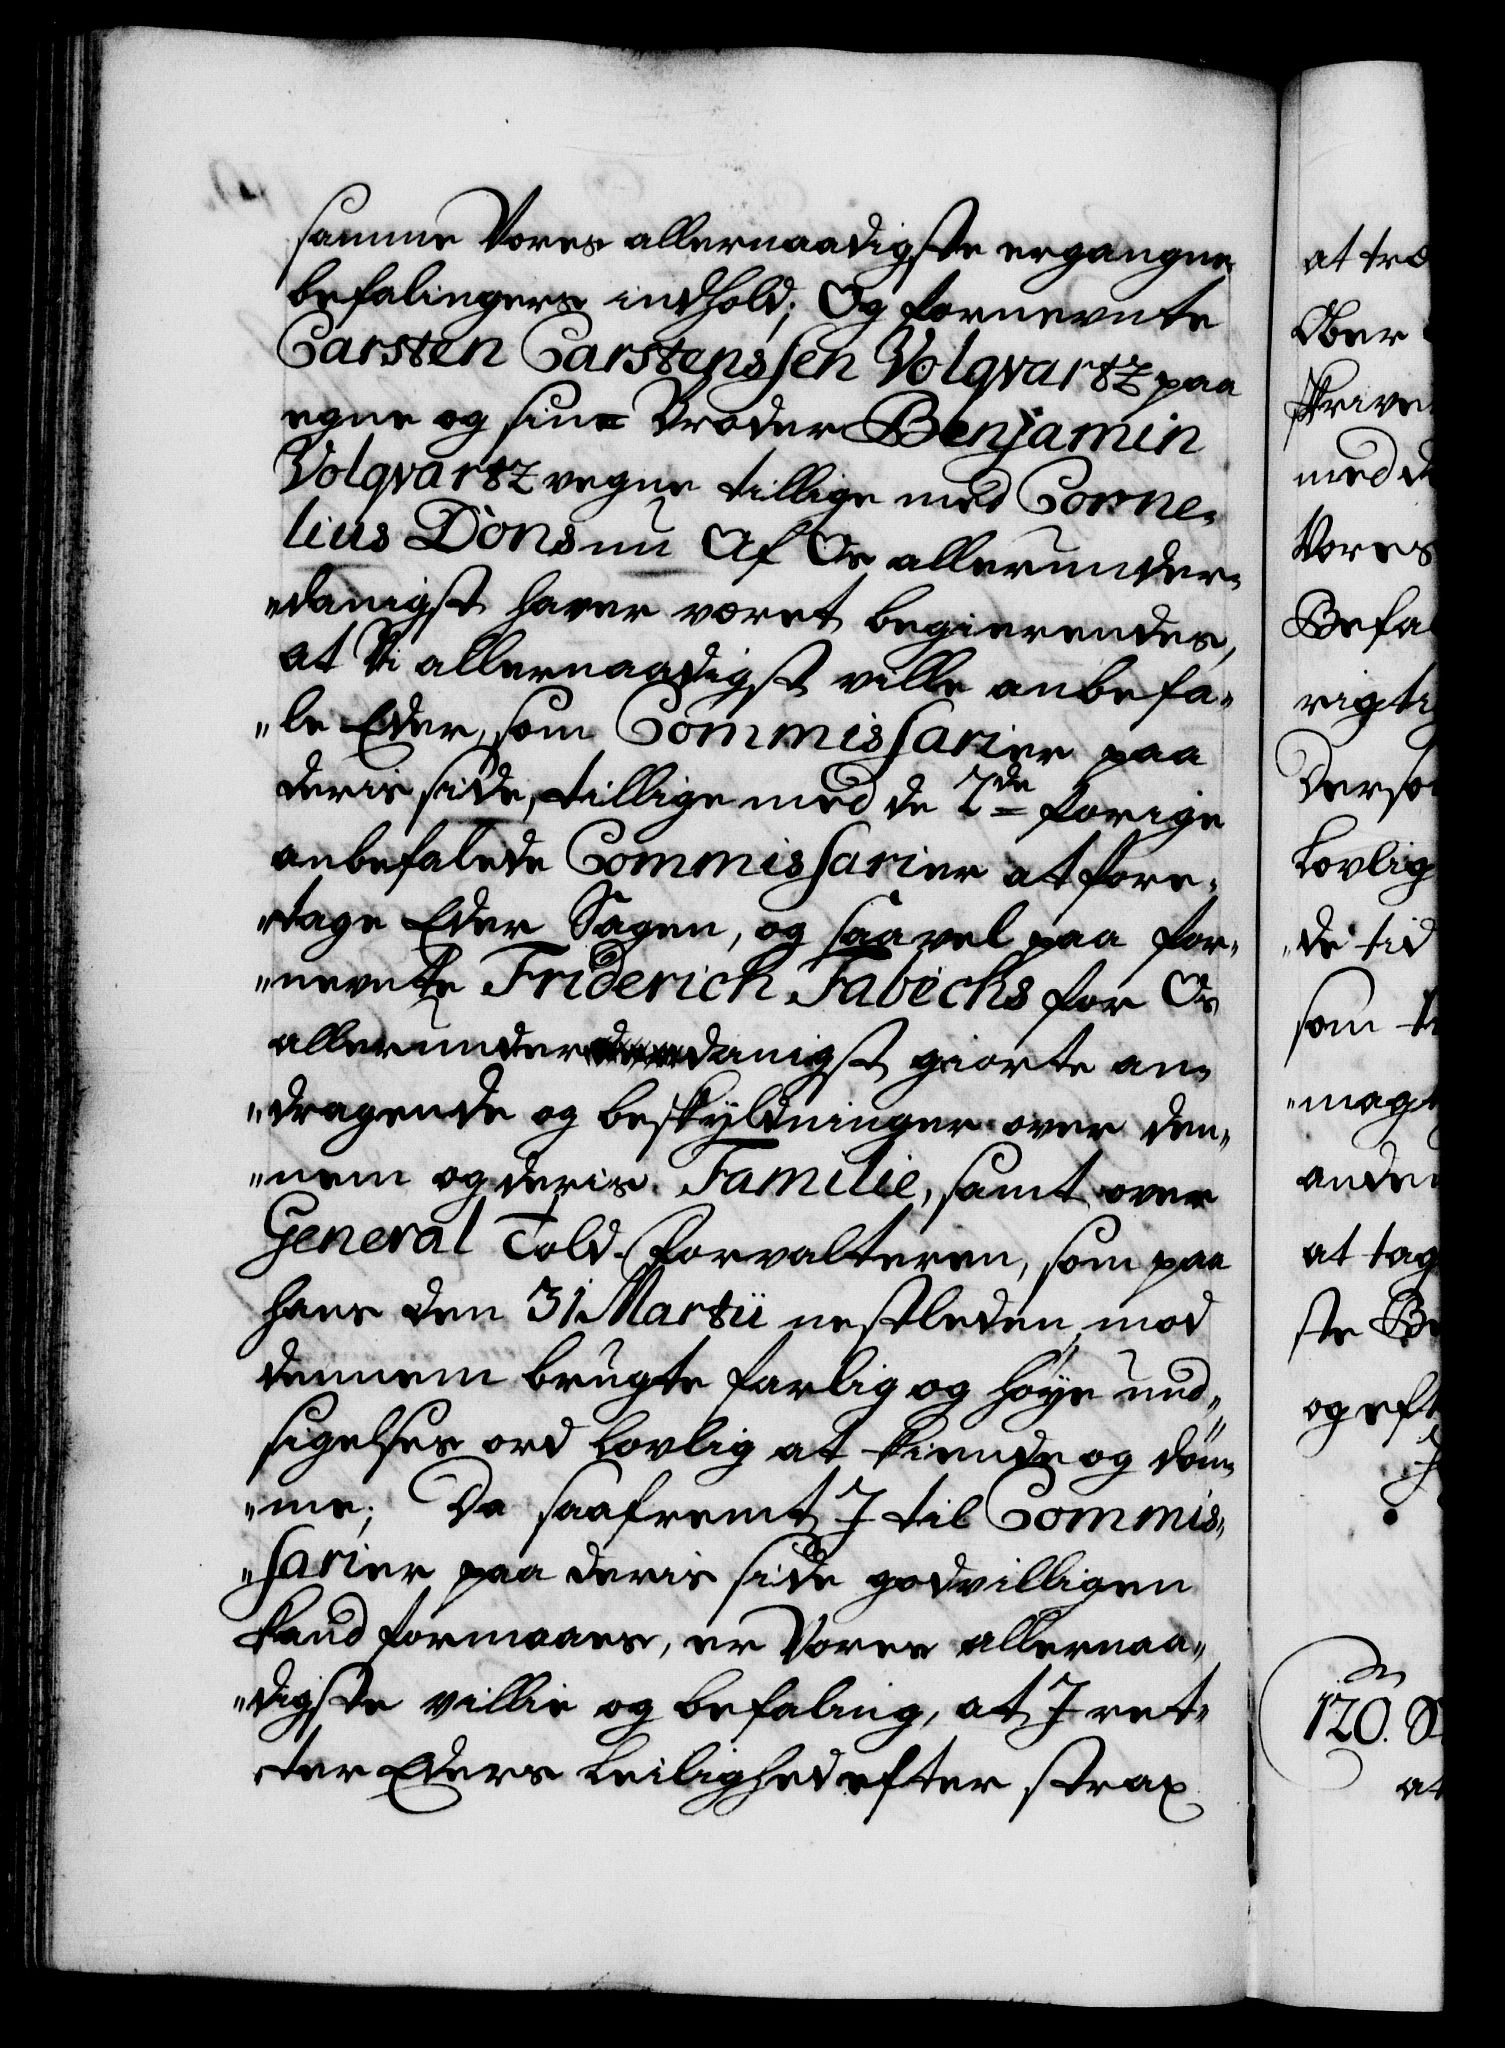 samme Vores allernaadigste ergangne
befalingers indhold; Og fornevnte
Carsten Carstenssen Volqvartz paa
egne og sin= Broder Benjamin
Volqvartz vegne tillige med Corne,
lius Döns nu Af Os allerunder,
„danigst haver været begierendes,
at Vi allernaadigst ville anbefa,
„le Eder, som Commissarier paa
deris side, tillige med de 2de forige
anbefalede Commissarier at fore,
„tage Eder Sagen, og saavel paa for,
„nevnte Friderich Fabechs for Os
allerunderdanigst giorte an,
„dragende og beskyldninger over den,
„nem og deris Familie, samt over
General Told-forvalteren, som paa
hans den 31. Martii nestleden mod
dennem brugte farlig og höye und,
sigelses ord lovlig at kiende og döm,
„me; Da saafremt I til Commis,
„sarier paa deris side godvilligen
kand formaaes, er Vores allernaa,
„digste villie og befaling, at I ret,
ter Eders leilighed efter strax
at træ
Ober
skrive
med d
Vores
Befal
rigti
Dersom
Lovlig
„de tid
som
„magt
anden
at tag
ste Be
og eft
120. S
at